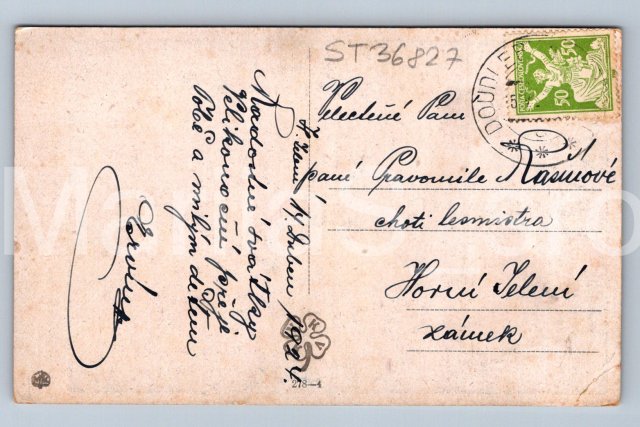 ST36827
DOUDLE
50 50
Velectěné Paní
paní Pravomile Rasinové
choti lesmistra
Horní Jelení
zámek
H. Jelení 14 Dubna 1924.
Radostné svátky
Velikonoční přeji
Vám a milým dětem
278-4